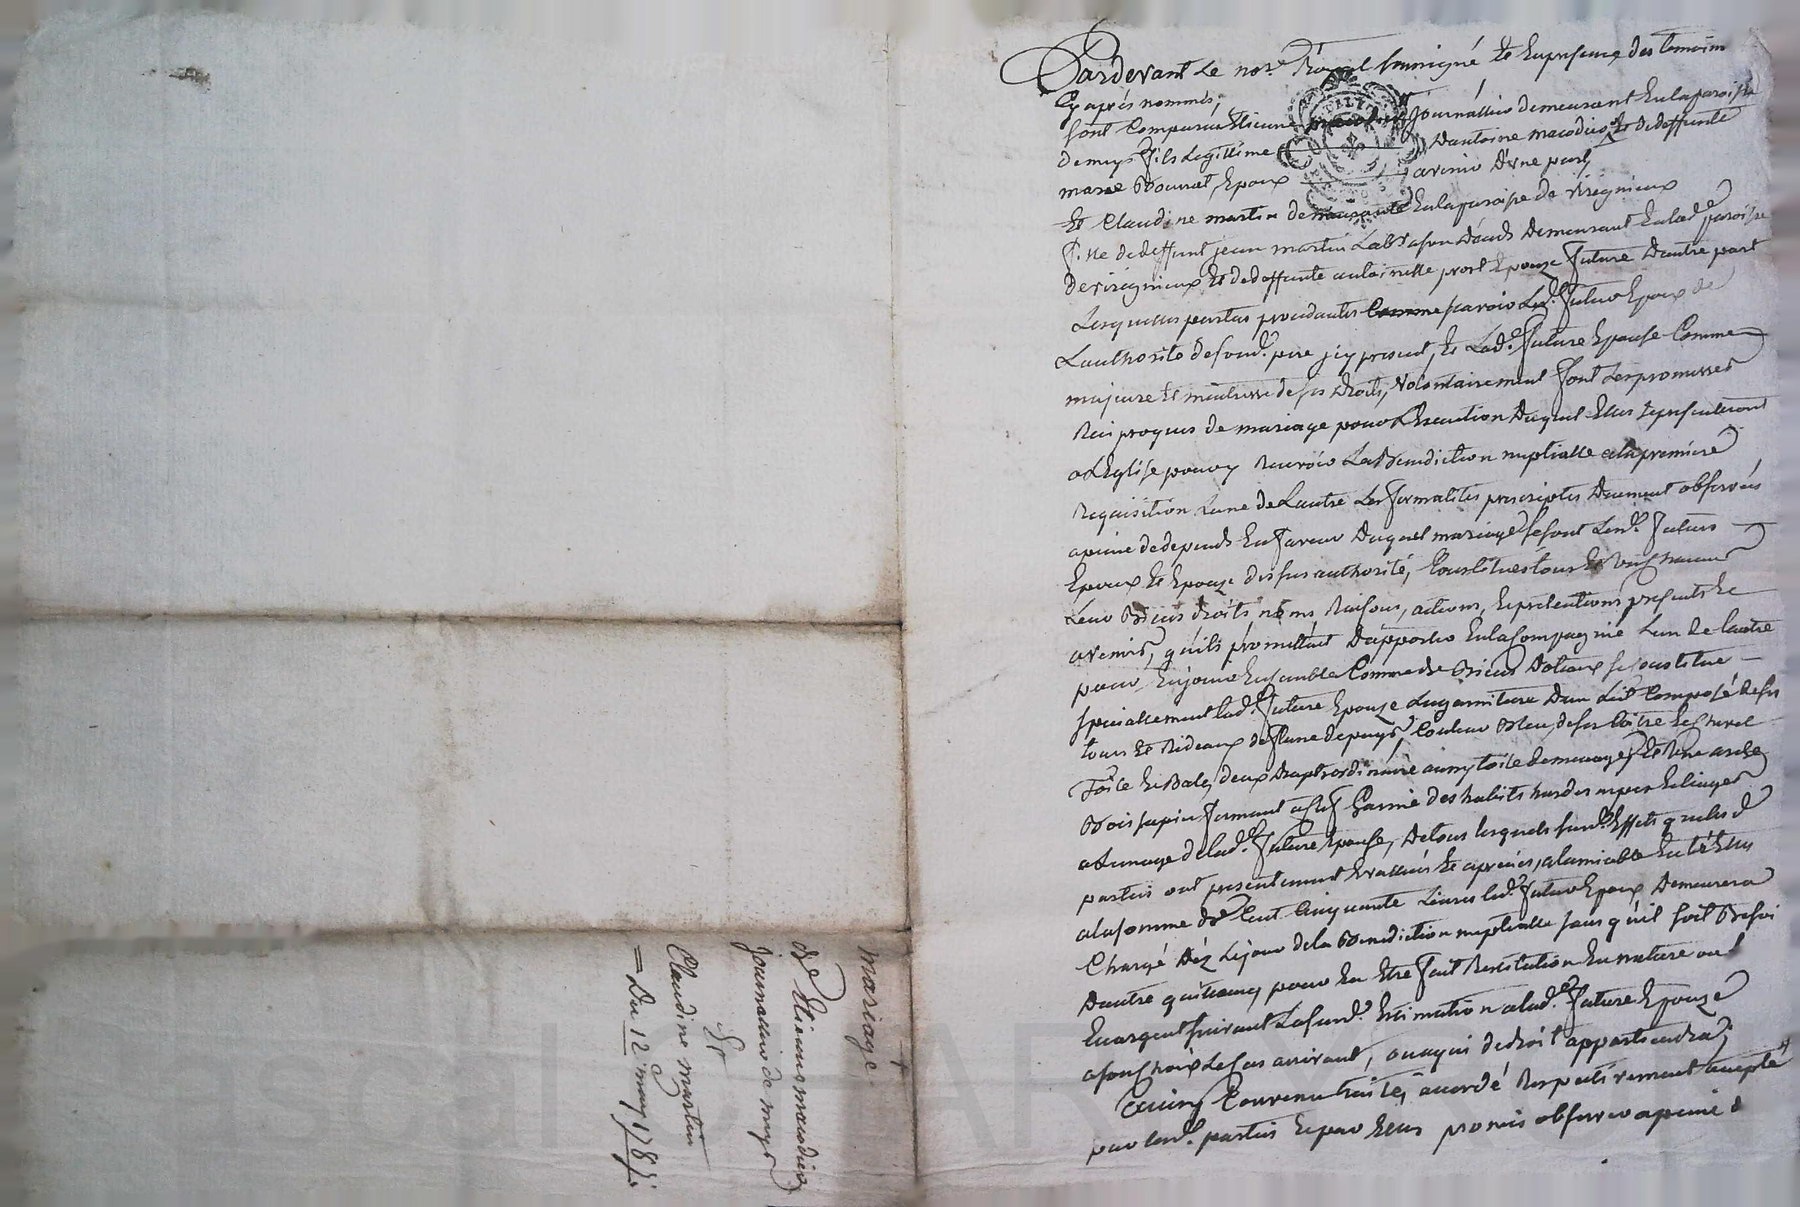 Pardevant Le nore Royal soussigné Et En presence des temoins
Cy après nommés,
sont Comparus Etienne journallier demeurant En la paroisse
de meys fils Legittime D'antoine macodier Et de deffunte
marie Bonnet, Epoux avenir D'une part,
Et Claudine martin demeurante En la paroisse de virigneux
fille de deffunt jean martin Labr a son Décéds Demeurant En lad.e paroisse
de virigneux Et de deffunte Epouze future D'autre part
Lesquelles parties procedantes Comme scavoir Led. futur Epoux de
L'authorité de sond. pere jcy present, Et Lad.e future Epouse Comme
majeure Et maitresse de ses Droits, Volontairement font Les promesses
Reciproques de mariage pour L'Execution Duquel Elles se presenteront
a L'Eglise pour y Recevoir La Benediction nuptialle a la premiere
Requisition L'une de L'autre Les formalités prescriptes Duement observées
a peine de depends En faveur Duquel mariage se sont Lesd. futurs
Epoux Et Epouze des sus authorisé, Constitués tous Et Uns Chacuns
Leur Biens droits, noms, Raisons, actions, Et pretentions presents Et
avenir, qu'ils promettent D'apporter En la Compagnie L'un de L'autre
pour En jouir Ensemble Comme de Biens Dotaux se Constitue
specialement lad.e future Epouze La garniture D'un Lit Composé de ses
tours Et Rideaux de Laine de pays, Couleur Bleu, de ses Coitre Et Chevet
Toile Et Bale, deux Draps ordinaire aussy toile de menage, Et Une arche
Bois sapin fermant a Clef Garnie des habits hardes nipes Et linges
a L'usage de lad.e future Epouse, De tous lesquels susd. Effets quelesd.
parties ont presentement Evallués Et apreciés, a lamiable Entre Elles
a la somme de Cent Cinquante Livres led. futur Epoux Demeurera
Chargé Dèz Le jour de la Benediction nuptialle sans qu'il soit Besoin
D'autre quittance, pour En Etre fait Restitution En nature ou
En argent suivant La susd. Estimation a lad.e future Epouze
a son choix Le Cas arrivant, ou a qui de droit appartiendra;
Ainsy Convenu traité, accordé Respectivement accepté
par Lesd. parties Et par Elles promis observer a peine d
mariage
de Etienne macodier
journallier de meys
Et
Claudine martin
= Du 12 may 178